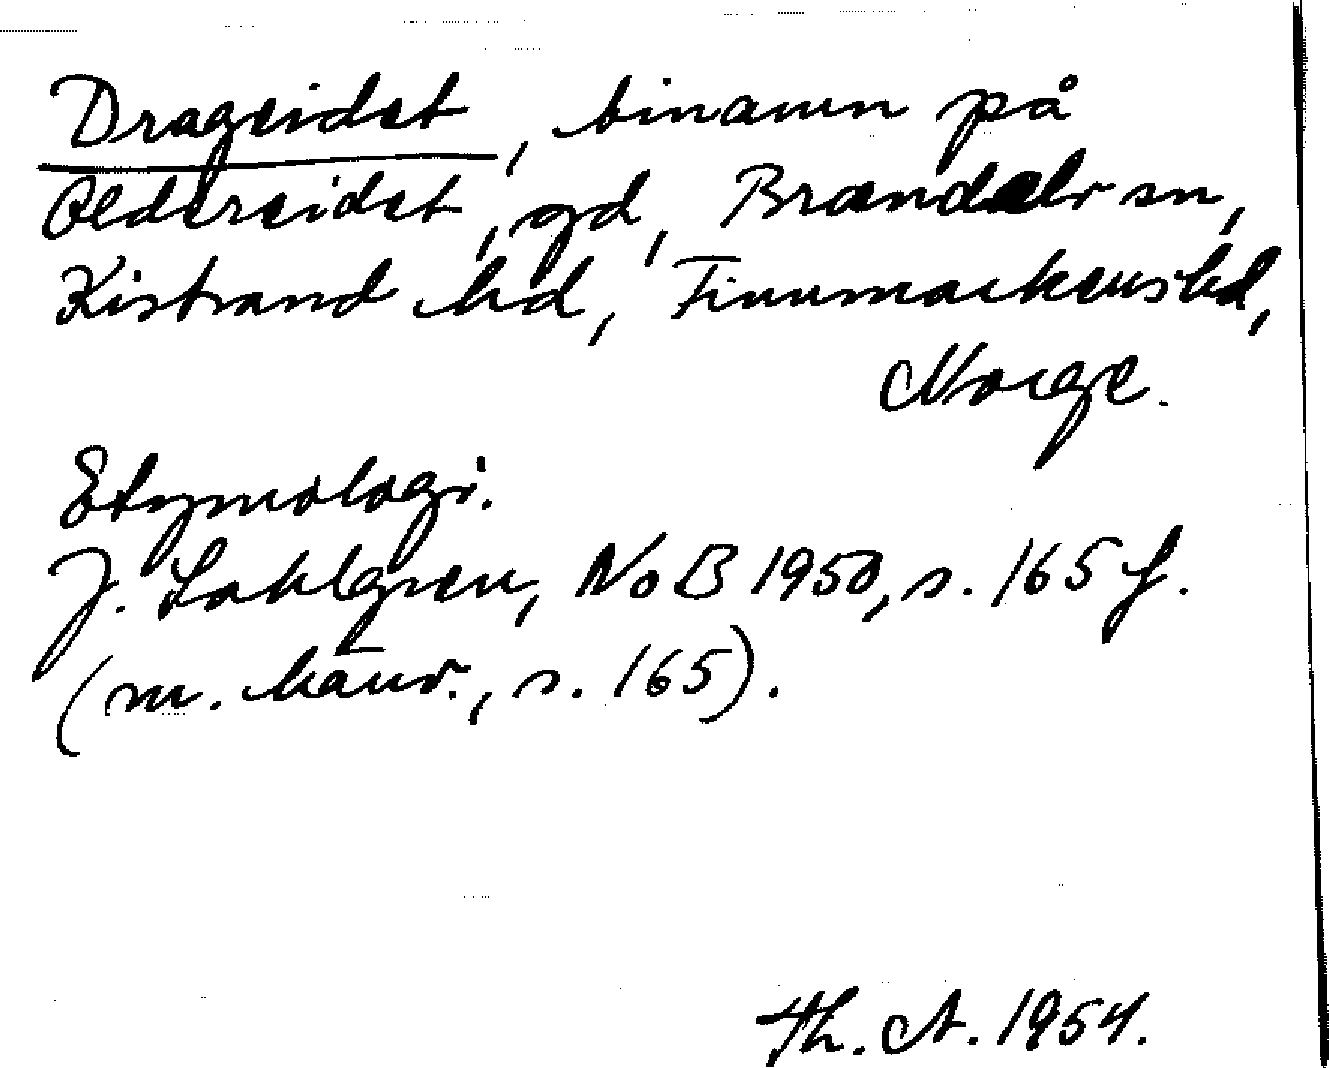 Drageidet, binamn på
Oldereidet, gd, Brændelv sn,
Kistrand hd, Finnmarkens hd,
Norge.
Etymologi.
J. Sahlgren, NoB 1950, s. 165 f.
(m. hänv., s. 165).
Th. A. 1954.